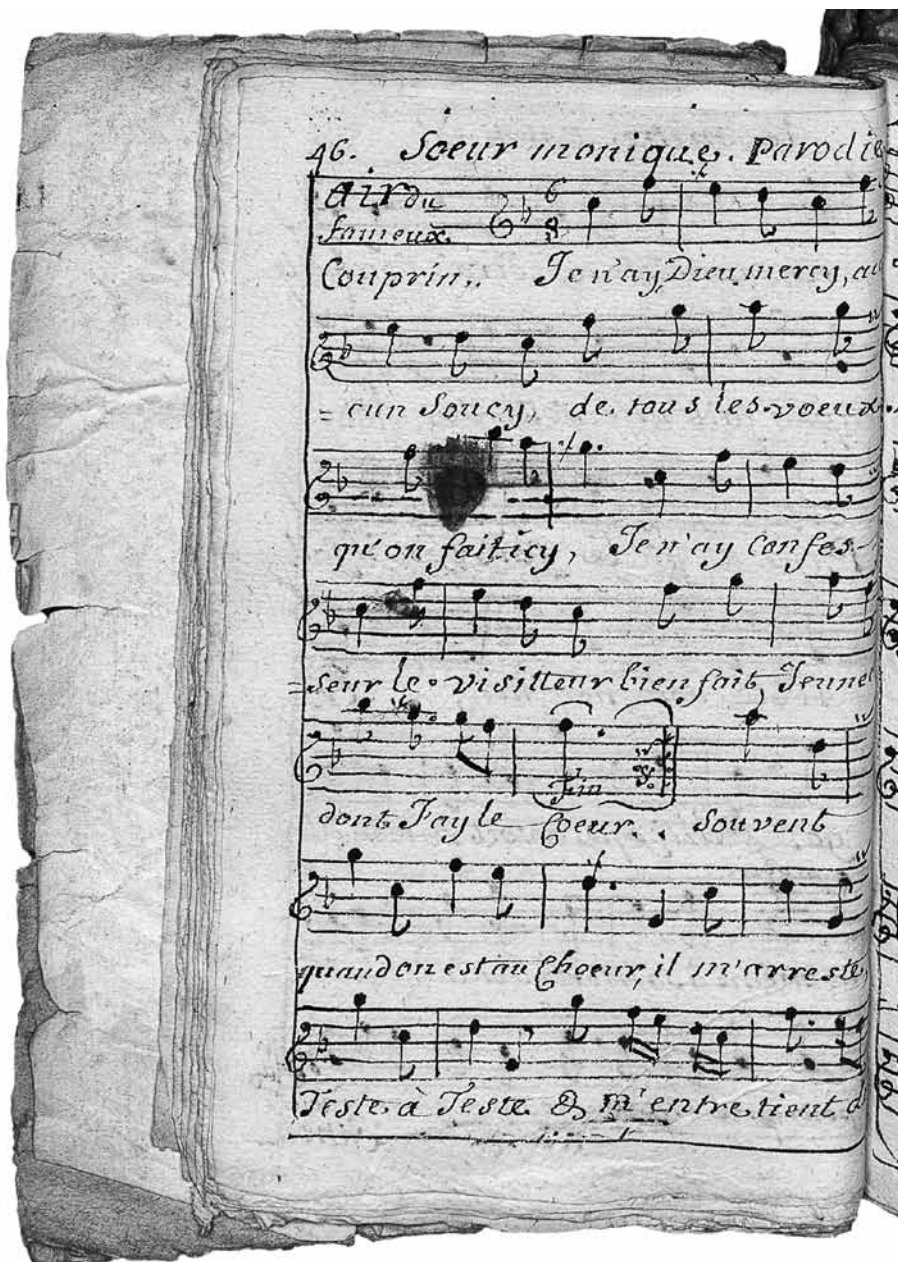 46. Soeur monique. Parodie
Air du
fameux
Couprin.. Je n'ay, Dieu mercy, au
= cun Soucy, de tous les voeux
qu'on fait icy, Je n'ay Confes-
=seur le visitteur bien fait, Jeune
Fin
dont J'ay le Coeur.. Souvent
quand on est au Choeur, il m'arreste
Teste à Teste & m'entretient